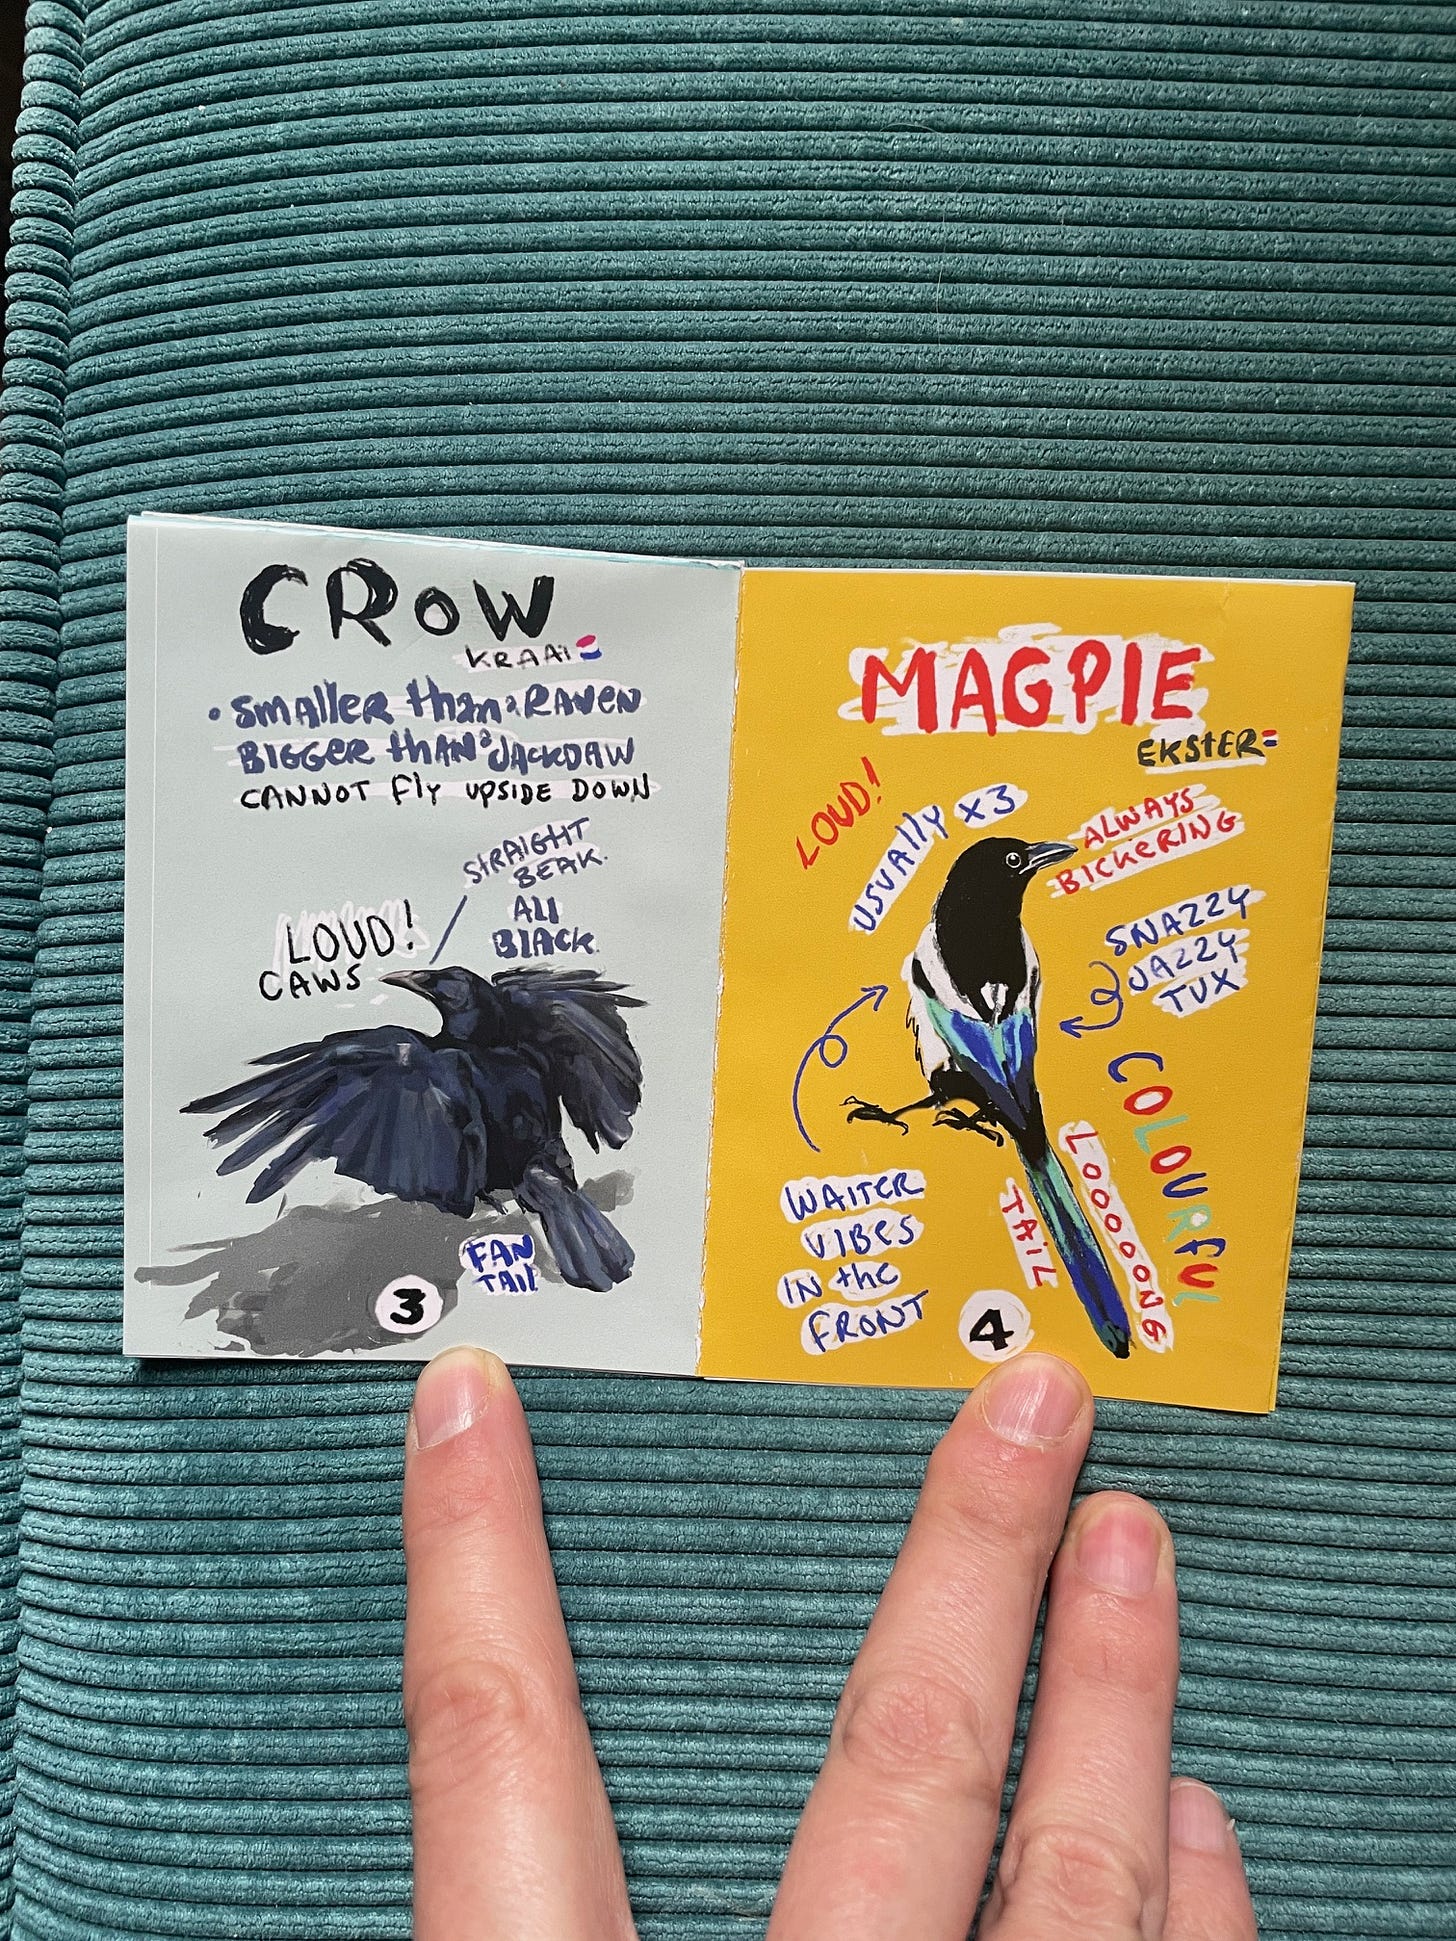 CROW
KRAAI
• SMALLER than : RAVEN
BIGGER tHAN : JACKDAW
CANNOT Fly UPSIDE DOWN
STRAIGHT
BEAK.
All
BlAcK.
LOUD!
CAWS
FAN
TAIl
3
MAGPIE
EKStER
LOUD!
USUAlly x3
ALWAYS
BICKERING
SNAZZY
JAZZY
TUX
COLOURFUL
LOOOOONG
TAIL
WAITER
VIBES
IN the
FRONT
4